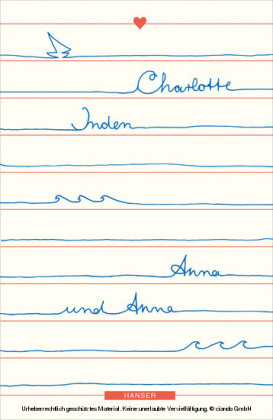 Charlotte
Inden
Anna
und Anna
HANSER
Urheberrechtlich geschütztes Material. Keine unerlaubte Vervielfältigung. © ciando GmbH